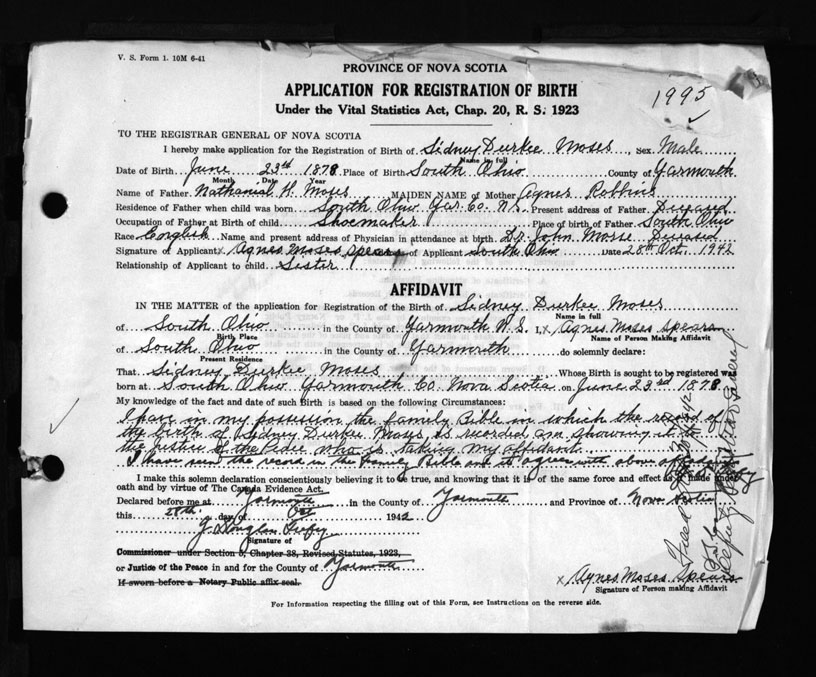 V. S. Form 1. 10M 6-41
PROVINCE OF NOVA SCOTIA
APPLICATION FOR REGISTRATION OF BIRTH
Under the Vital Statistics Act, Chap. 20, R. S. 1923
1995
TO THE REGISTRAR GENERAL OF NOVA SCOTIA
I hereby make application for the Registration of Birth of Sidney Durkee Moses, Sex Male
Name in full
Date of Birth June 23rd 1878 Place of Birth South Ohio County of Yarmouth
Month Date Year
Name of Father Nathanial H. Moses MAIDEN NAME of Mother Agnes Robbins
Residence of Father when child was born South Ohio Yar. Co. N.S. Present address of Father Deceased
Occupation of Father at Birth of child Shoemaker Place of Birth of Father South Ohio
Race English Name and present address of Physician in attendance at birth Dr. John Deceased
Signature of Applicant x Agnes Moses Spears of Applicant South Ohio Date 28th Oct. 1942
Relationship of Applicant to child Sister
AFFIDAVIT
IN THE MATTER of the application for Registration of the Birth of Sidney Durkee Moses
Name in full
of South Ohio in the County of Yarmouth N.S. I, x Agnes Moses Spears
Birth Place Name of Person Making Affidavit
of South Ohio in the County of Yarmouth do solemnly declare:
Present Residence
That Sidney Durkee Moses Whose Birth is sought to be registered was
born at South Ohio Yarmouth Co. Nova Scotia on June 23rd 1878
My knowledge of the fact and date of such Birth is based on the following Circumstances:
I have in my possession the family Bible in which the record of
the birth of Sidney Durkee Moses is recorded am showing it to
the Justice of the Peace who is taking my affidavit.
I have seen the record in the family Bible and it agrees with above
I make this solemn declaration conscientiously believing it to be true, and knowing that it is of the same force and effect as if made under
oath and by virtue of The Canada Evidence Act.
Declared before me at Yarmouth in the County of Yarmouth and Province of Nova Scotia
this 28th day of Oct 1942
J. Douglas
Signature of
Commissioner under Section 5, Chapter 38, Revised Statutes, 1923,
or Justice of the Peace in and for the County of Yarmouth
If sworn before a Notary Public affix seal.
x Agnes Moses Spears
Signature of Person making Affidavit
For Information respecting the filling out of this Form, see Instructions on the reverse side.